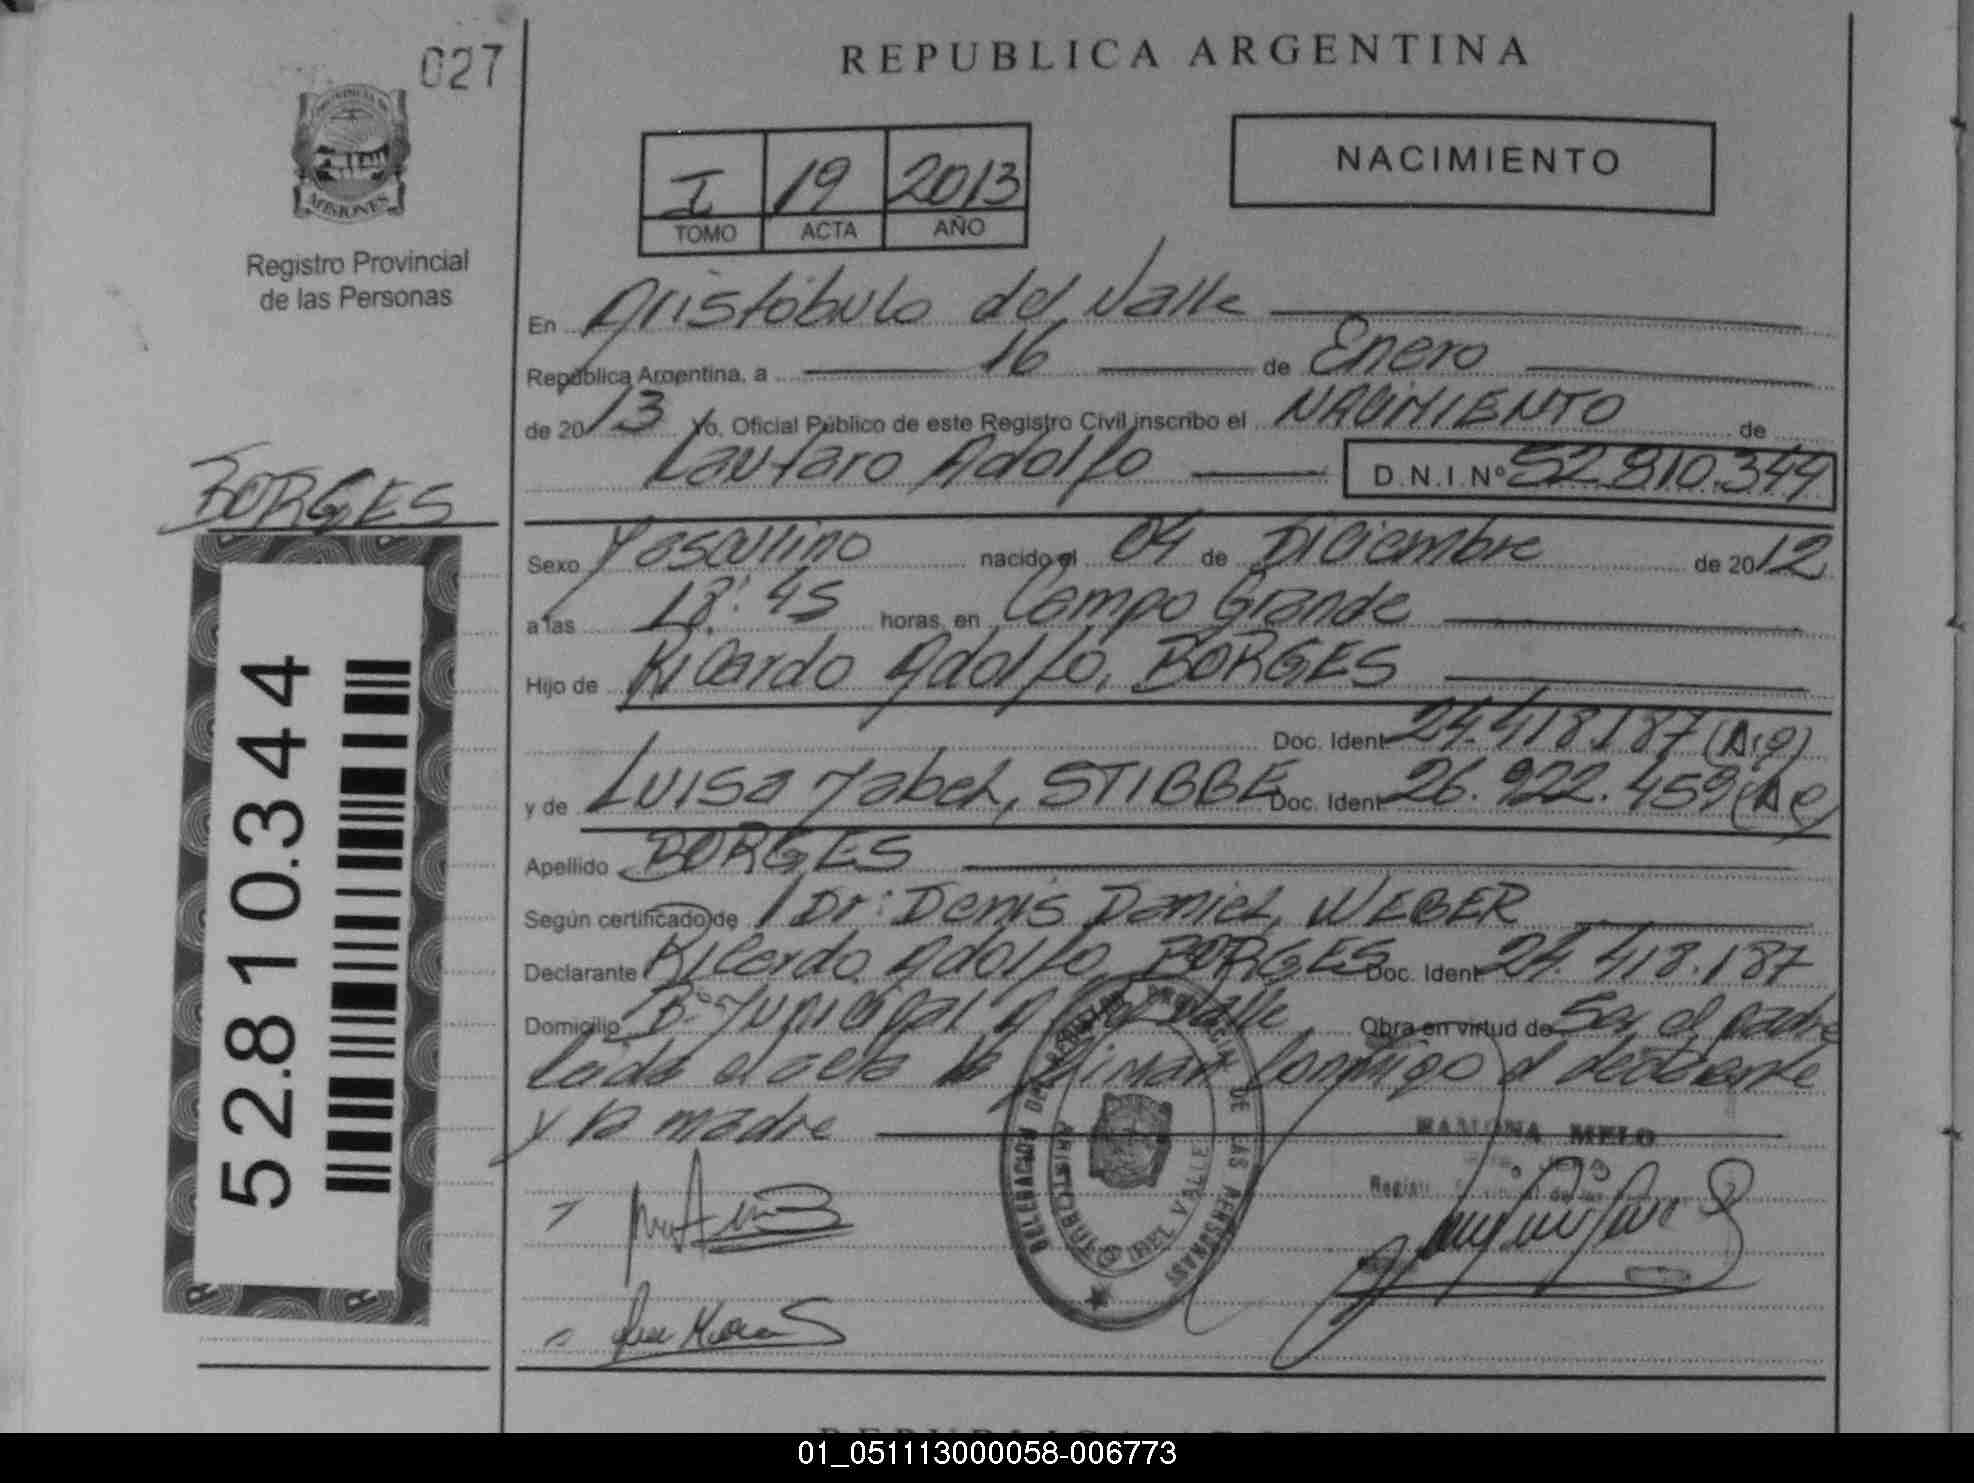 027
REPUBLICA ARGENTINA
PROVINCIA DE
MISIONES
Registro Provincial
de las Personas
I 19 2013
TOMO ACTA AÑO
NACIMIENTO
En Aristóbulo del Valle
República Argentina, a 16 de Enero
de 2013 Yo, Oficial Público de este Registro Civil inscribo el NACIMIENTO de
Lautaro Adolfo D.N.I.Nº 52.810.344
BORGES
Sexo Masculino nacido el 04 de Diciembre de 2012
a las 18:45 horas, en Campo Grande
Hijo de Ricardo Adolfo, BORGES
Doc. Ident 24.418.187 (Arg)
y de Luisa Mabel, STIBBE Doc. Ident 26.922.459
Apellido BORGES
Según certificado de Dr: Denis Daniel, WEBER
Declarante Ricardo Adolfo, BORGES Doc. Ident 24.418.187
Domicilio Bº Municipal Valle Obra en virtud de Ser el padre
Leída el acta la firman conmigo el declarante
y la madre
52.810.344
DELEGACION DEL REGISTRO PROVINCIAL DE LAS PERSONAS
ARISTOBULO DEL VALLE
RAMONA MELO
REPUBLICA ARGENTINA
01_051113000058-006773